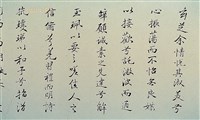 玄芝余情悅其淑美兮
心振蕩而不怡無良媒
以接歡兮託微波而通
辭願誠素之先達兮解
玉珮以要之嗟佳人之
信脩兮羌習禮而明詩
抗瓊珶以和予兮指潛